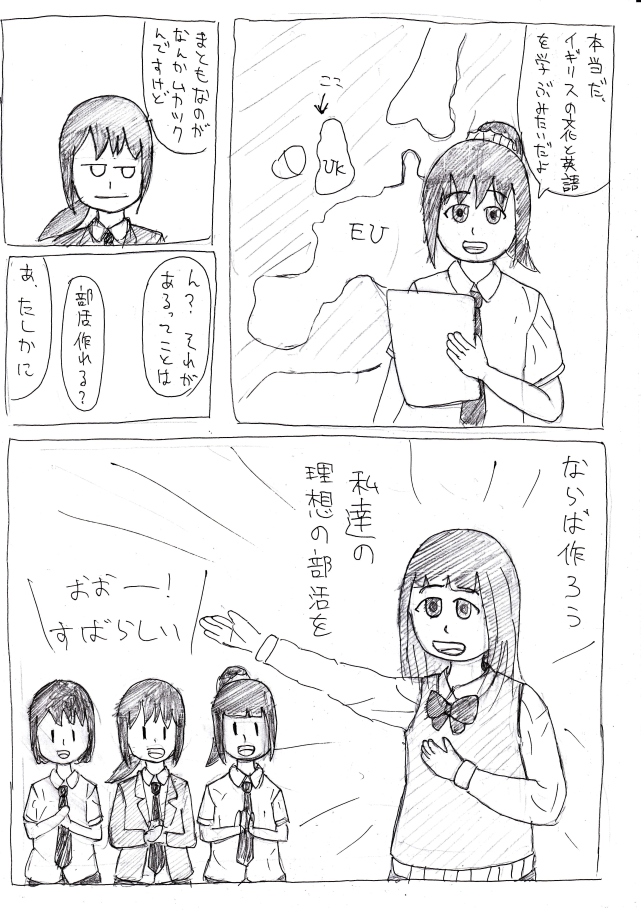 本当だ、
イギリスの文化と英語
を学ぶみたいだよ
ここ
UK
EU
まともなのが
なんかムカつク
んですけど
ん？それが
あるってことは
部活作れる？
あ、たしかに
ならば作ろう
私達の
理想の部活を
おおー！
すばらしい